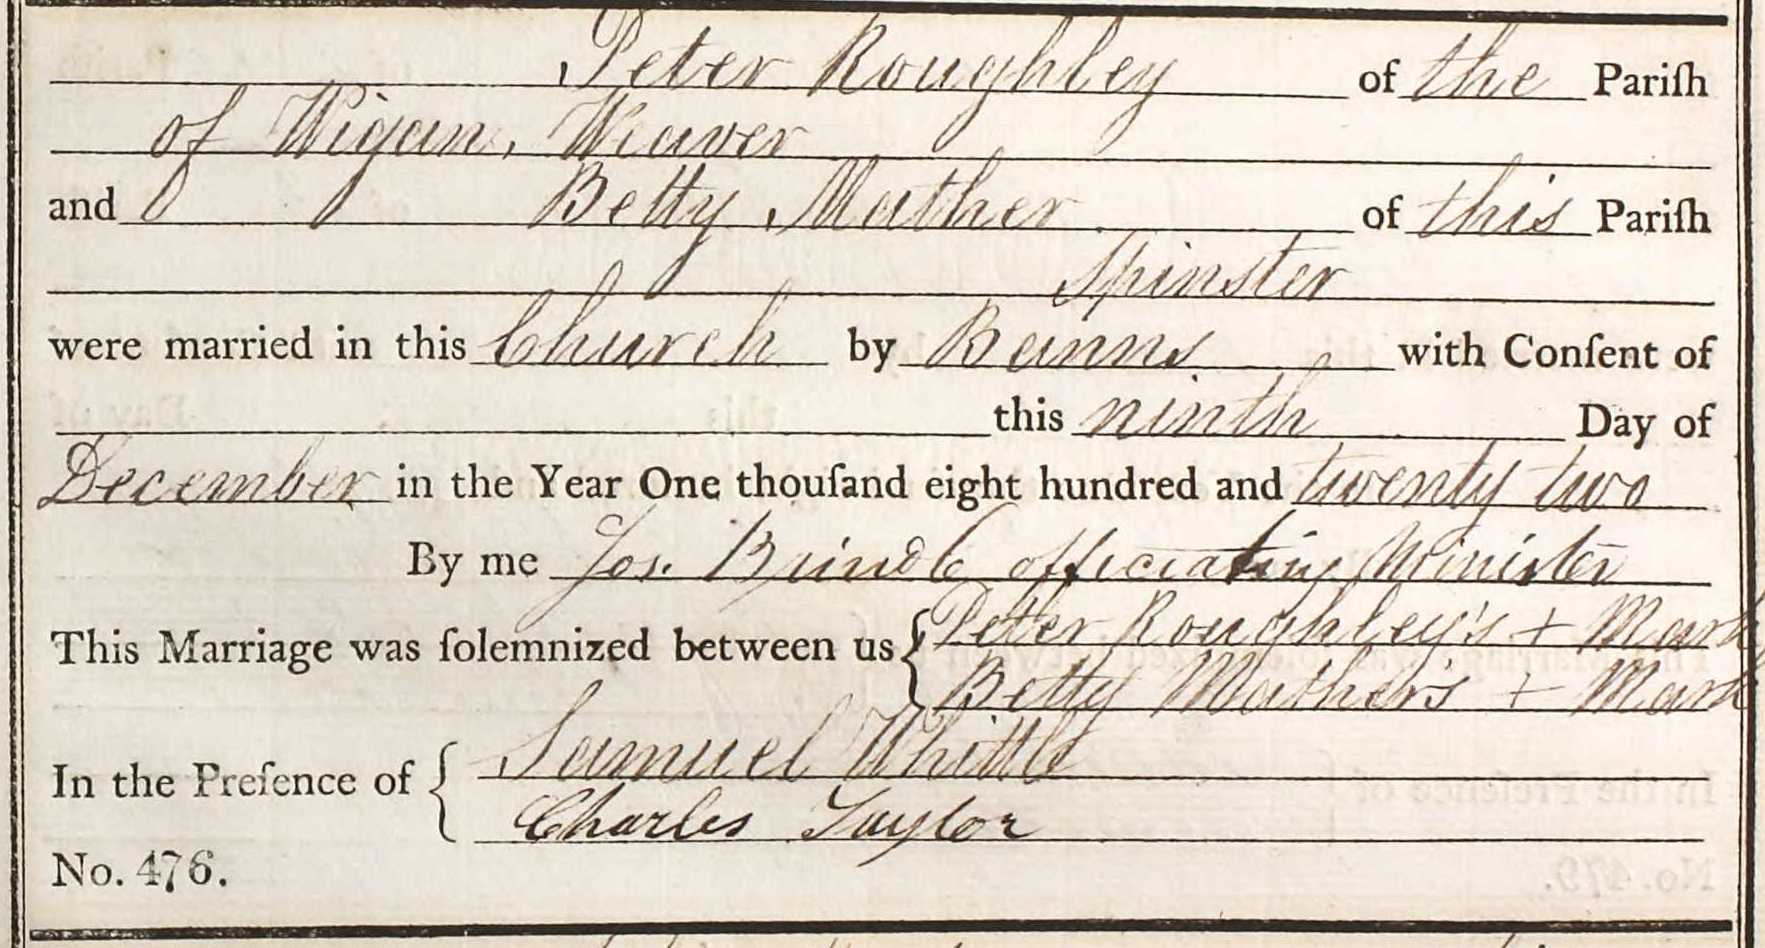 Peter Roughley of the Pariſh
of Wigan, Weaver
and Betty Mather of this Pariſh
Spinster
were married in this Church by Banns with Conſent of
this ninth Day of
December in the Year One thouſand eight hundred and twenty two
By me Jos. Brindle officiating Minister
This Marriage was ſolemnized between us { Peter Roughley's + Mark
Betty Mather's + Mark
In the Preſence of { Samuel Whittle
Charles Taylor
No. 476.